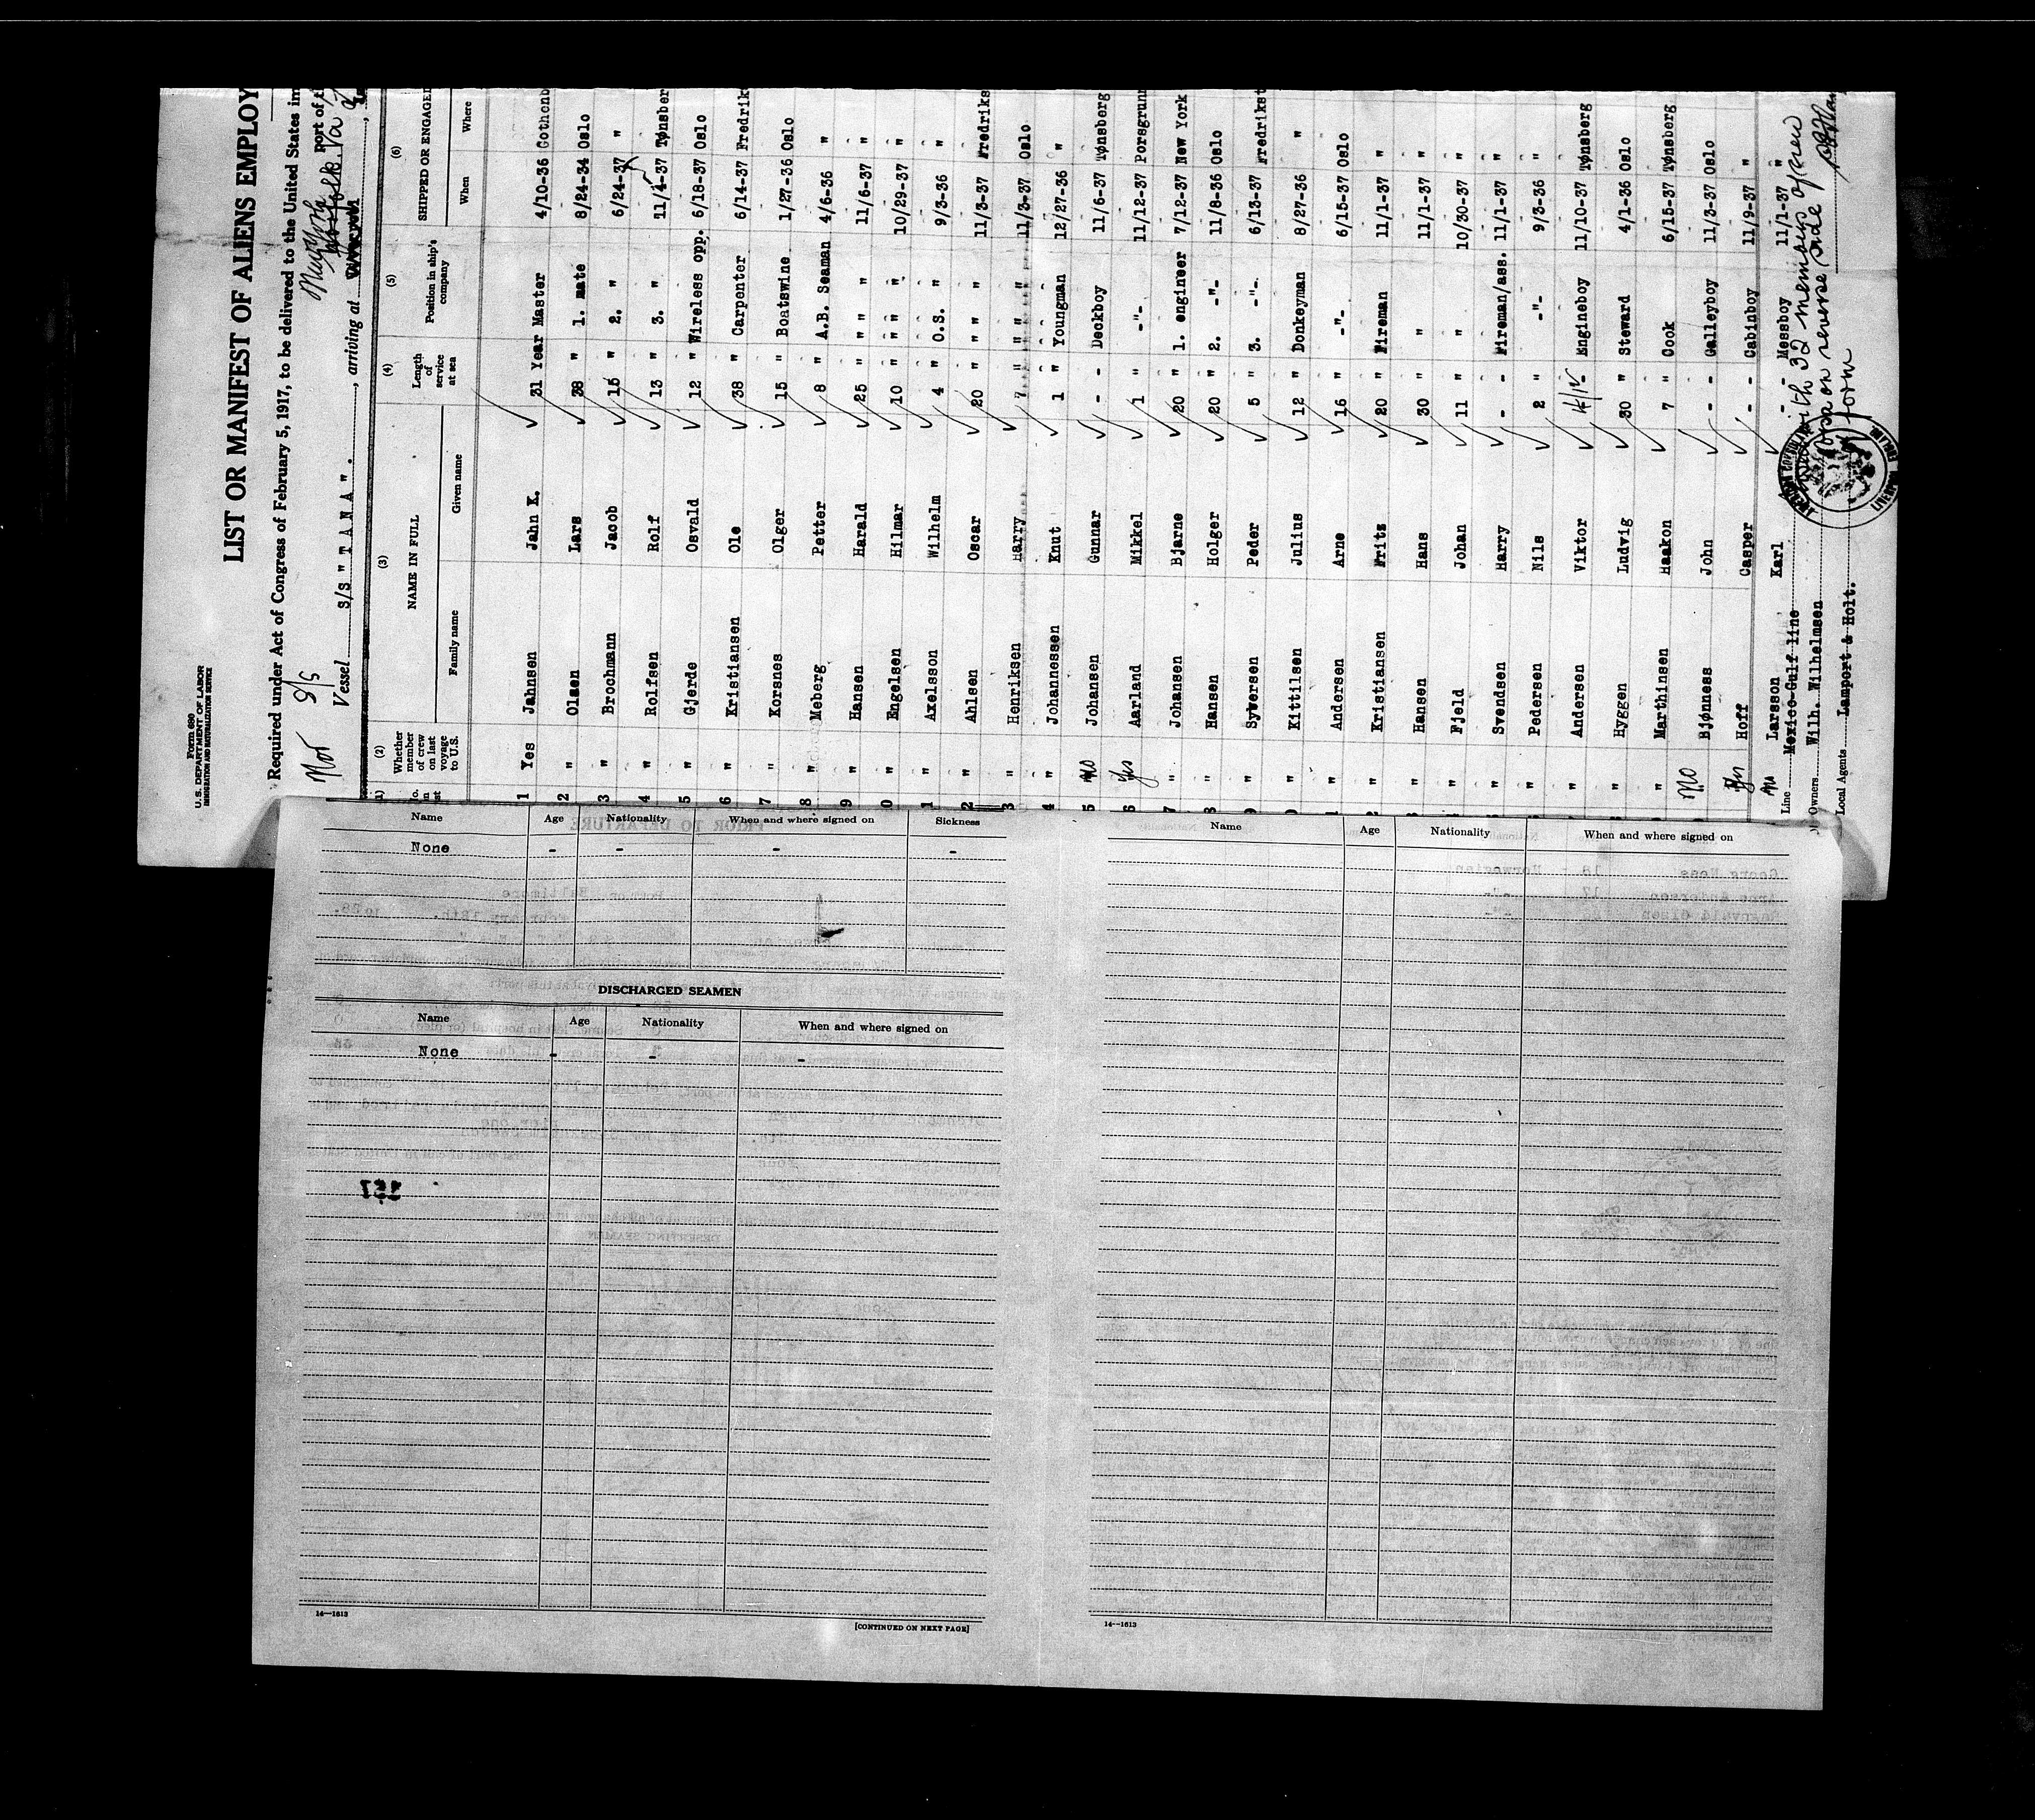 Form 680
U. S. DEPARTMENT OF LABOR
IMMIGRATION AND NATURALIZATION SERVICE
LIST OR MANIFEST OF ALIENS EMPLOY
Required under Act of Congress of February 5, 1917, to be delivered to the United States im
port of
Nor S/S
Vessel S/S "TANA". , arriving at Norfolk, Va
(1) (2) (3) (4) (5) (6)
Whether member of crew on last voyage to U.S. NAME IN FULL Length of service at sea Position in ship's company SHIPPED OR ENGAGED
Family name Given name When Where
1 Yes Jahnsen Jahn K. 31 Year Master 4/10-36 Gothonb
2 " Olsen Lars 38 " 1. mate 8/24-34 Oslo
3 " Brochmann Jacob 15 " 2. " 6/24-37 "
4 " Rolfsen Rolf 13 " 3. " 11/4-37 Tønsber
5 " Gjerde Osvald 12 " Wireless opp. 6/18-37 Oslo
6 " Kristiansen Ole 38 " Carpenter 6/14-37 Fredrik
7 " Korsnes Olger 15 " Boatswine 1/27-36 Oslo
8 " Meberg Petter 8 " A.B. Seaman 4/6-36 "
9 " Hansen Harald 25 " " " 11/6-37 "
0 " Engelsen Hilmar 10 " " " 10/29-37 "
1 " Axelsson Wilhelm 4 " O.S. " 9/3-36 "
2 " Ahlsen Oscar 20 " " " 11/3-37 Fredriks
3 " Henriksen Harry 7 " " " 11/3-37 Oslo
4 " Johannessen Knut 1 " Youngman 12/27-36 "
5 No Johansen Gunnar - - Deckboy 11/6-37 Tønsberg
6 Yes Aarland Mikkel 1 " -"- 11/12-37 Porsgrunn
7 " Johansen Bjarne 20 " 1. engineer 7/12-37 New York
8 " Hansen Holger 20 " 2. -"- 11/8-36 Oslo
9 " Syversen Peder 5 " 3. -"- 6/13-37 Fredrikst
0 " Kittilsen Julius 12 " Donkeyman 8/27-36 "
1 " Andersen Arne 16 " -"- 6/15-37 Oslo
2 " Kristiansen Fritz 20 " Fireman 11/1-37 "
3 " Hansen Hans 30 " " 11/1-37 "
" Fjeld Johan 11 " " 10/30-37 "
" Svendsen Harry - - Fireman/ass. 11/1-37 "
" Pedersen Nils 2 " -"- 9/3-36 "
" Andersen Viktor Engineboy 11/10-37 Tønsberg
" Hyggen Ludvig 30 " Steward 4/1-36 Oslo
" Marthinsen Haakon 7 " Cook 6/15-37 Tønsberg
No Bjønness John - - Galleyboy 11/3-37 Oslo
Yes Hoff Casper - - Cabinboy 11/9-37 "
No Larsson Karl - - Messboy 11/1-37 "
Line Mexico Gulf line
Owners Wilh. Wilhelmsen
Local Agents Lamport & Holt.
with 32 members of crew
on reverse side of
form
Name Age Nationality When and where signed on Sickness
None - - - -
DISCHARGED SEAMEN
Name Age Nationality When and where signed on
None - - -
14—1613
[CONTINUED ON NEXT PAGE]
Name Age Nationality When and where signed on
14—1613